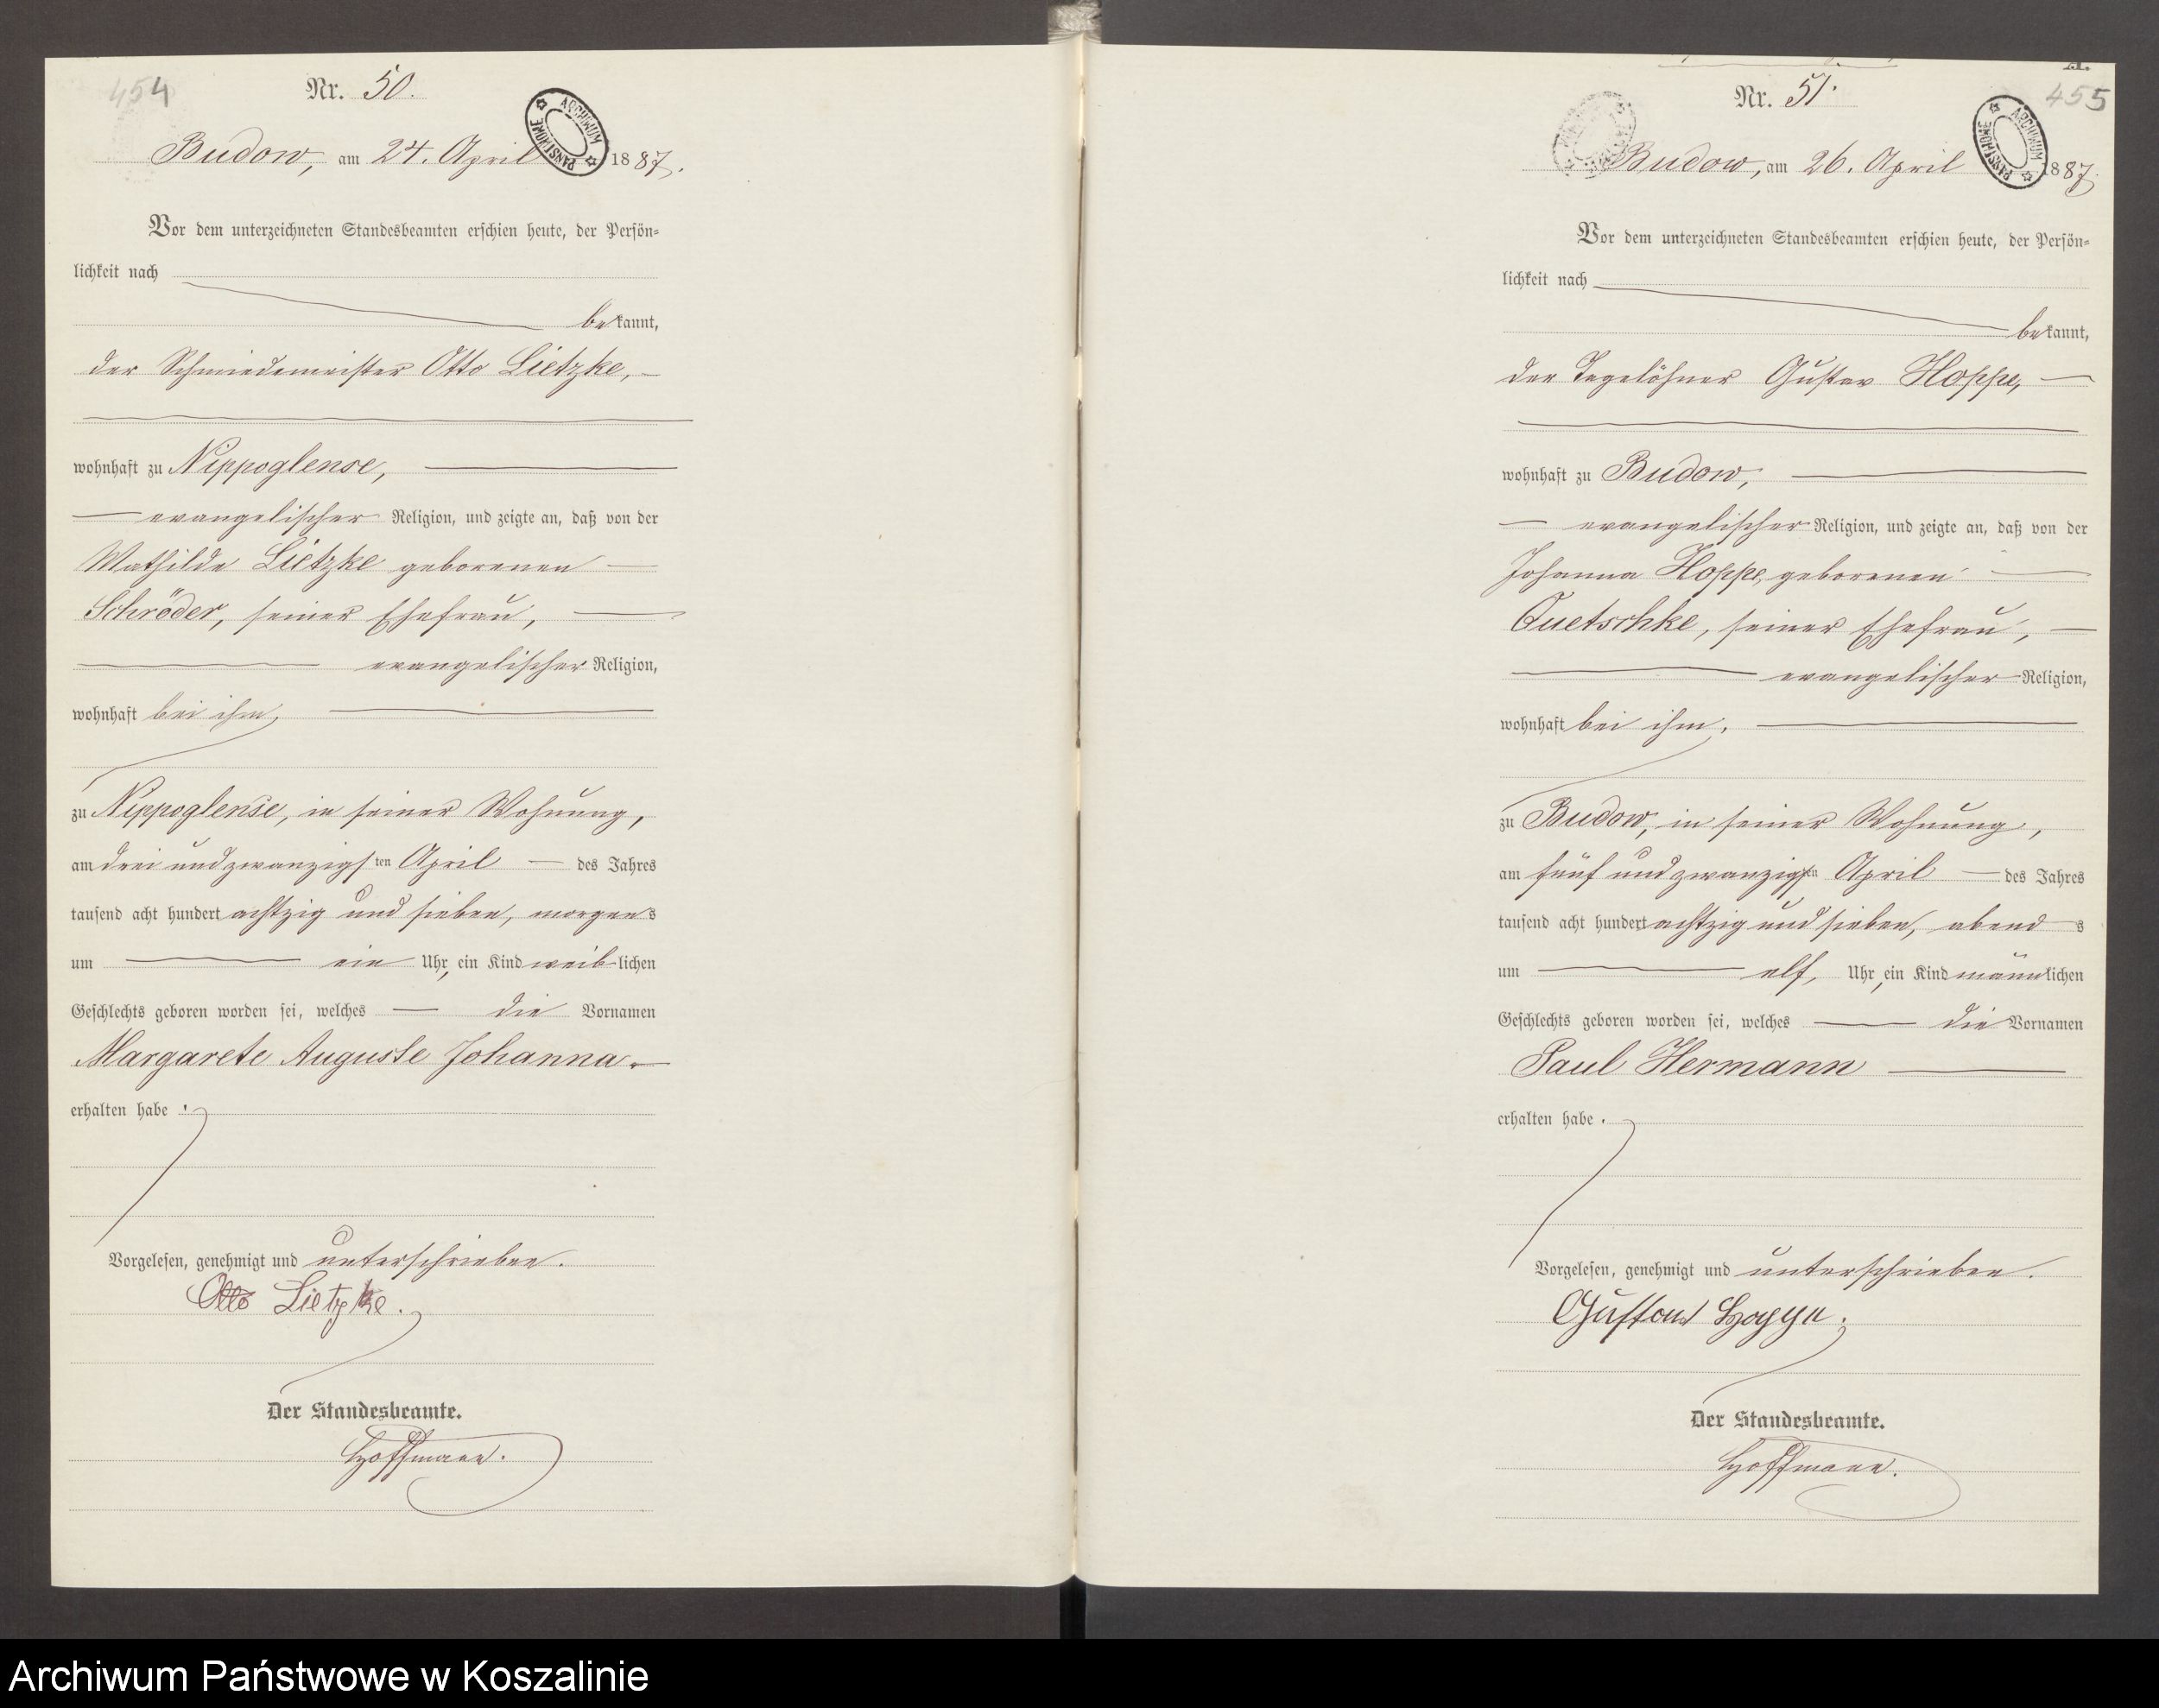 454
Nr. 50.
ARCHIWUM PAŃSTWOWE
Budow, am 24. April 1887.
Vor dem unterzeichneten Standesbeamten erschien heute, der Persön-
lichkeit nach
bekannt,
der Schmiedemeister Otto Lietzke,
wohnhaft zu Nippoglense,
evangelischer Religion, und zeigte an, daß von der
Mathilde Lietzke geborenen
Schröder, seiner Ehefrau,
evangelischer Religion,
wohnhaft bei ihm,
zu Nippoglense, in seiner Wohnung,
am drei und zwanzigsten April des Jahres
tausend acht hundert achtzig und sieben, morgens
um ein Uhr, ein Kind weiblichen
Geschlechts geboren worden sei, welches die Vornamen
Margarete Auguste Johanna
erhalten habe.
Vorgelesen, genehmigt und unterschrieben.
Otto Lietzke.
Der Standesbeamte.
Hoffmann.
A.
455
Nr. 51.
ARCHIWUM PAŃSTWOWE
Budow, am 26. April 1887.
Vor dem unterzeichneten Standesbeamten erschien heute, der Persön-
lichkeit nach
bekannt,
der Tagelöhner Gustav Hoppe,
wohnhaft zu Budow,
evangelischer Religion, und zeigte an, daß von der
Johanna Hoppe, geborenen
Quetschke, seiner Ehefrau,
evangelischer Religion,
wohnhaft bei ihm,
zu Budow, in seiner Wohnung,
am fünf und zwanzigsten April des Jahres
tausend acht hundert achtzig und sieben, abends
um elf Uhr, ein Kind männlichen
Geschlechts geboren worden sei, welches die Vornamen
Paul Hermann
erhalten habe.
Vorgelesen, genehmigt und unterschrieben.
Gustav Hoppe.
Der Standesbeamte.
Hoffmann.
Archiwum Państwowe w Koszalinie